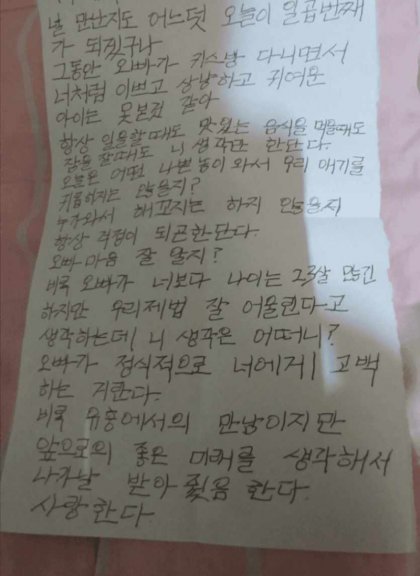 널 만난지도 어느덧 오늘이 일곱번째
가 되짔구나
그동안 오빠가 키스방 다니면서
너처럼 이쁘고 상냥하고 귀여운
아이는 못본것 같아
항상 일을할때도 맛있는 음식을 먹을때도
잠을 잘때도 니 생각만 한단다.
오늘은 어떤 나쁜놈이 와서 우리 애기를
괴롭히지는 않을지?
누가와서 해꼬지는 하지 않을지
항상 걱정이 되곤한단다.
오빠 마음 잘 알지?
비록 오빠가 너보다 나이는 23살 많긴
하지만 우리제법 잘 어울린다고
생각하는데 니 생각은 어떠니?
오빠가 정식적으로 너에게 고백
하는 거란다.
비록 유흥에서의 만남이지만
앞으로의 좋은 미래를 생각해서
나가날 받아줬음 한다.
사랑한다